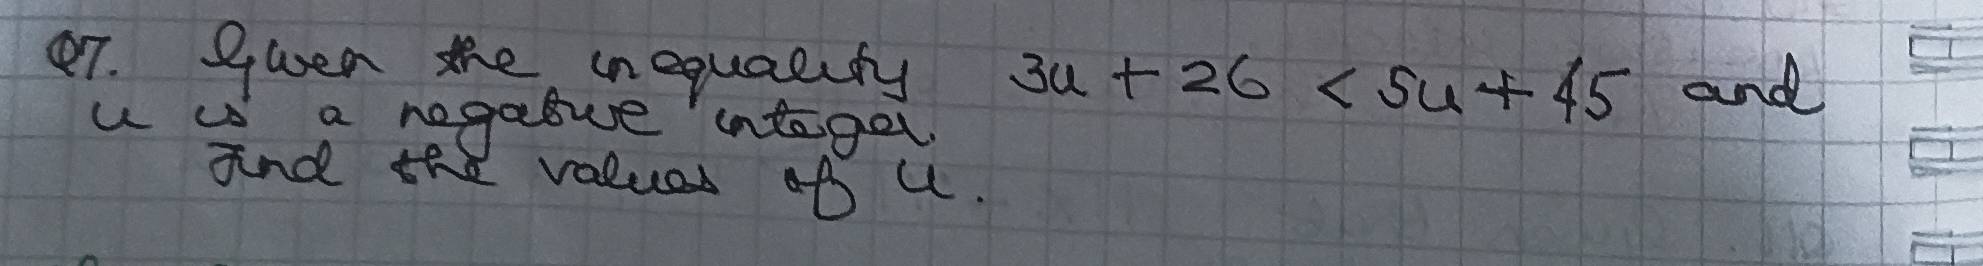 Q7. Given the inequality 3u + 26 < 5u + 45 and
u is a negative integer.
Find the values of u.